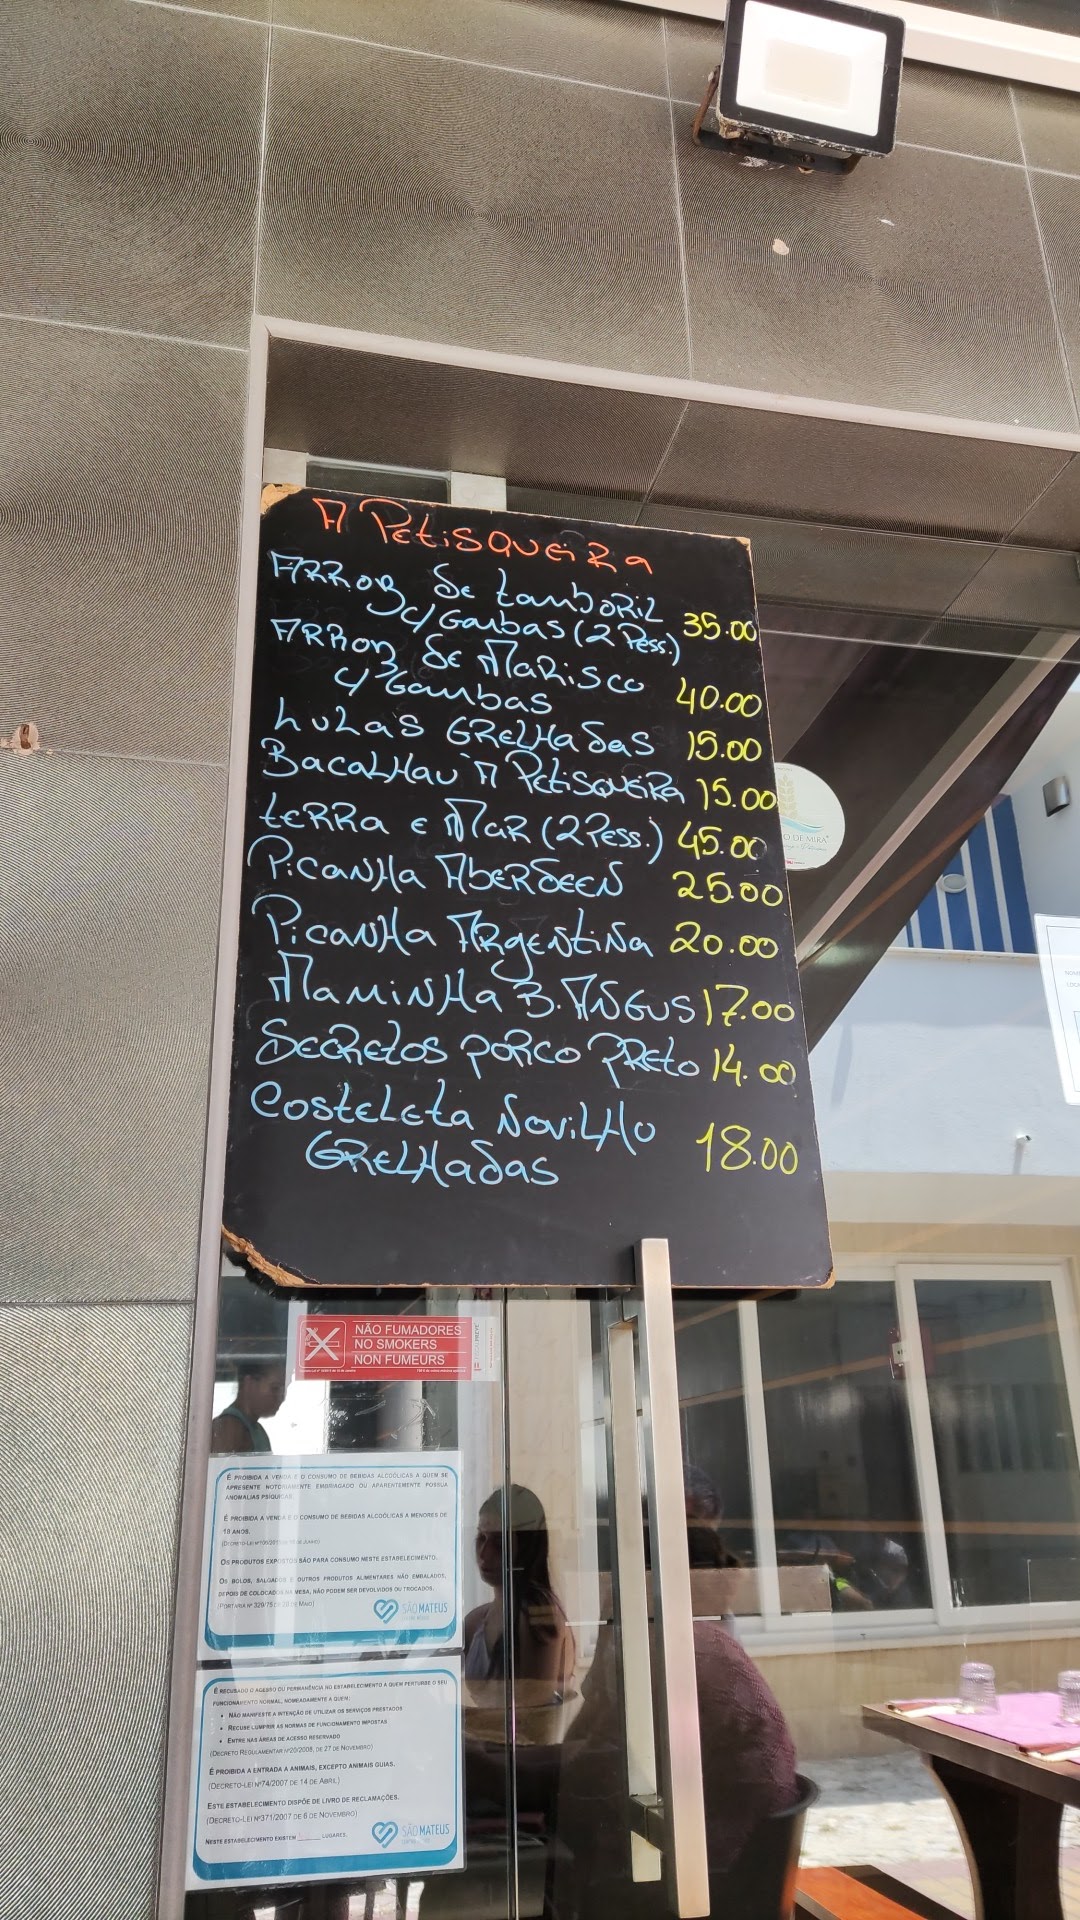 A PETISQUEIRA
ARROZ DE TAMBORIL
C/ GAMBAS (2 PESS.) 35.00
ARROZ DE MARISCO
C/ GAMBAS 40.00
LULAS GRELHADAS 15.00
BACALHAU À PETISQUEIRA 15.00
TERRA E MAR (2 PESS.) 45.00
PICANHA ABERDEEN 25.00
PICANHA ARGENTINA 20.00
MAMINHA B. ANGUS 17.00
SECRETOS PORCO PRETO 14.00
COSTELETA NOVILHO
GRELHADAS 18.00
O DE MIRA
NÃO FUMADORES
NO SMOKERS
NON FUMEURS
É PROIBIDA A VENDA E O CONSUMO DE BEBIDAS ALCOÓLICAS A QUEM SE
APRESENTE NOTORIAMENTE EMBRIAGADO OU APARENTEMENTE POSSUA
ANOMALIAS PSÍQUICAS.
É PROIBIDA A VENDA E O CONSUMO DE BEBIDAS ALCOÓLICAS A MENORES DE
18 ANOS.
OS PRODUTOS EXPOSTOS SÃO PARA CONSUMO NESTE ESTABELECIMENTO.
OS BOLOS, SALGADOS E OUTROS PRODUTOS ALIMENTARES NÃO EMBALADOS,
DEPOIS DE COLOCADOS NA MESA, NÃO PODEM SER DEVOLVIDOS OU TROCADOS.
(PORTARIA Nº 329/75 DE 28 DE MAIO)
SÃO MATEUS
É RECUSADO O ACESSO OU PERMANÊNCIA NO ESTABELECIMENTO A QUEM PERTURBE O SEU
FUNCIONAMENTO NORMAL, NOMEADAMENTE A QUEM:
• NÃO MANIFESTE A INTENÇÃO DE UTILIZAR OS SERVIÇOS PRESTADOS
• RECUSE CUMPRIR AS NORMAS DE FUNCIONAMENTO IMPOSTAS
• ENTRE NAS ÁREAS DE ACESSO RESERVADO
(DECRETO REGULAMENTAR Nº20/2008, DE 27 DE NOVEMBRO)
É PROIBIDA A ENTRADA A ANIMAIS, EXCEPTO ANIMAIS GUIAS.
(DECRETO-LEI Nº74/2007 DE 14 DE ABRIL)
ESTE ESTABELECIMENTO DISPÕE DE LIVRO DE RECLAMAÇÕES.
(DECRETO-LEI Nº371/2007 DE 6 DE NOVEMBRO)
NESTE ESTABELECIMENTO EXISTEM LUGARES.
SÃO MATEUS